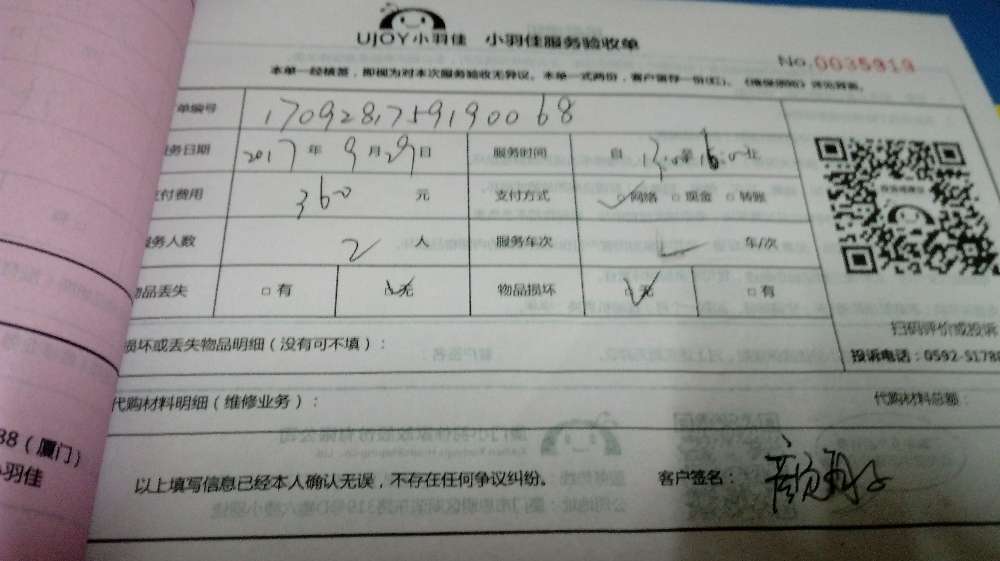 UJOY小羽佳 小羽佳服务验收单
No.0035919
本单一经核签,即视为对本次服务验收无异议。本单一式两份,客户留存一份(红)。
单编号 1709281759190068
务日期 2017年9月29日 服务时间 自13:00至16:00止
付费用 360元 支付方式 ☑网络 □现金 □转账
务人数 2人 服务车次 车/次
物品丢失 □有 ☑无 物品损坏 ☑无 □有
损坏或丢失物品明细(没有可不填):
扫码评价或投诉
投诉电话:0592-51780
代购材料明细(维修业务): 代购材料总额:
以上填写信息已经本人确认无误,不存在任何争议纠纷。 客户签名:
38(厦门)
小羽佳